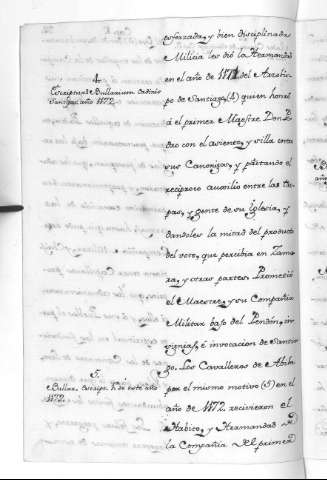 esforzada, y bien disciplinada
Milicia les dió la Hermandad
en el año de 1171 del Arzobis-
po de Santiago, (4) quien honrró
á el primer Maestre Don P.
dro con el asiento, y silla entre
sus Canonigos, y pactando el
reciproco auxilio entre las
pas, y gente de su Iglesia, y
dandoles la mitad del producto
del voto, que percibia en Zamo-
ra, y otras partes. Prometió
el Maestre, y su Compañia
Militar bajo del Pendón, in-
signias, é invocacion de Santia-
go. Los Cavalleros de Abila
por el mismo motivo (5) en el
año de 1172. recivieron el
Habito, y Hermandad
la Compañia del primer
4.
Bullarium
año 1172.
5.
Bullar. de este año
1172.